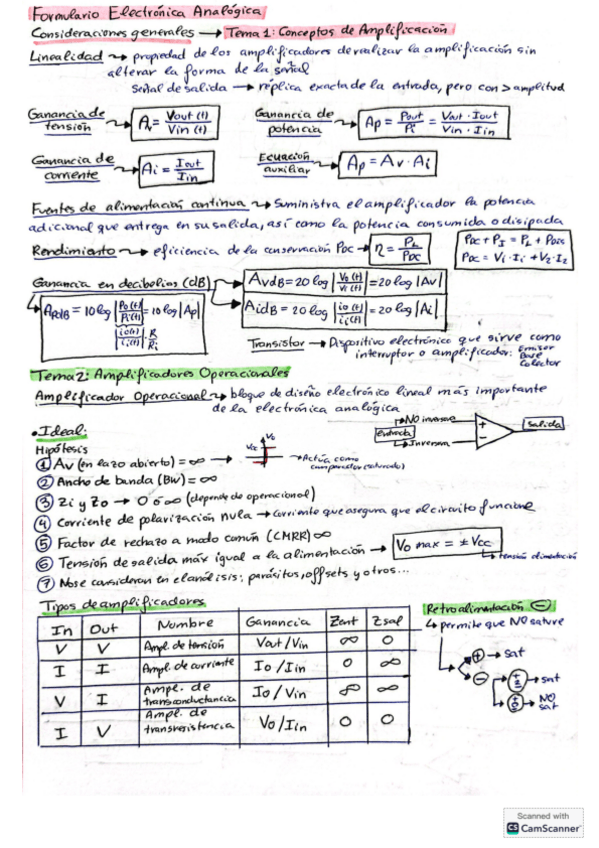 Formulario Electrónica Analógica
Consideraciones generales → Tema 1: Conceptos de Amplificación
Linealidad → propiedad de los amplificadores de realizar la amplificación sin
alterar la forma de la señal
Señal de salida → réplica exacta de la entrada, pero con > amplitud
Ganancia de tensión → Av = Vout (t) / Vin (t)
Ganancia de potencia → Ap = Pout / Pi = Vout · Iout / Vin · Iin
Ganancia de corriente → Ai = Iout / Iin
Ecuación auxiliar → Ap = Av · Ai
Fuentes de alimentación continua → Suministra el amplificador la potencia
adicional que entrega en su salida, así como la potencia consumida o disipada
Rendimiento → eficiencia de la conservación PDC → η = PL / PDC
PDC + PI = PL + PDIS
PDC = V1 · I1 + V2 · I2
Ganancia en decibelios (dB)
AvdB = 20 log |Vo(t) / Vi(t)| = 20 log |Av|
AidB = 20 log |io(t) / ii(t)| = 20 log |Ai|
ApdB = 10 log |Po(t) / Pi(t)| = 10 log |Ap|
|io(t) / ii(t)| R / Ri
Transistor → Dispositivo electrónico que sirve como
interruptor o amplificador: Emisor
Base
Colector
Tema 2: Amplificadores Operacionales
Amplificador Operacional → bloque de diseño electrónico lineal más importante
de la electrónica analógica
entrada
No inversora
Inversora
+
-
salida
• Ideal:
Hipótesis
① Av (en lazo abierto) = ∞ →
Vcc
Vo
→ Actúa como
comparador (saturado)
② Ancho de banda (BW) = ∞
③ Zi y Zo → 0 ó ∞ (depende de operacional)
④ Corriente de polarización nula → corriente que asegura que el circuito funcione
⑤ Factor de rechazo a modo común (CMRR) ∞
⑥ Tensión de salida máx igual a la alimentación → Vo max = ± Vcc
→ tensión alimentación
⑦ No se consideran en el análisis: parásitos, offsets y otros...
Tipos de amplificadores
In Out Nombre Ganancia Zent Zsal
V V Ampl. de tensión Vout / Vin ∞ 0
I I Ampl. de corriente Io / Iin 0 ∞
V I Ampl. de transconductancia Io / Vin ∞ ∞
I V Ampl. de transresistencia Vo / Iin 0 0
Retroalimentación ⊖
↳ permite que NO sature
⊕ → sat
⊖
→ sat
→ NO
sat
Scanned with
CS CamScanner